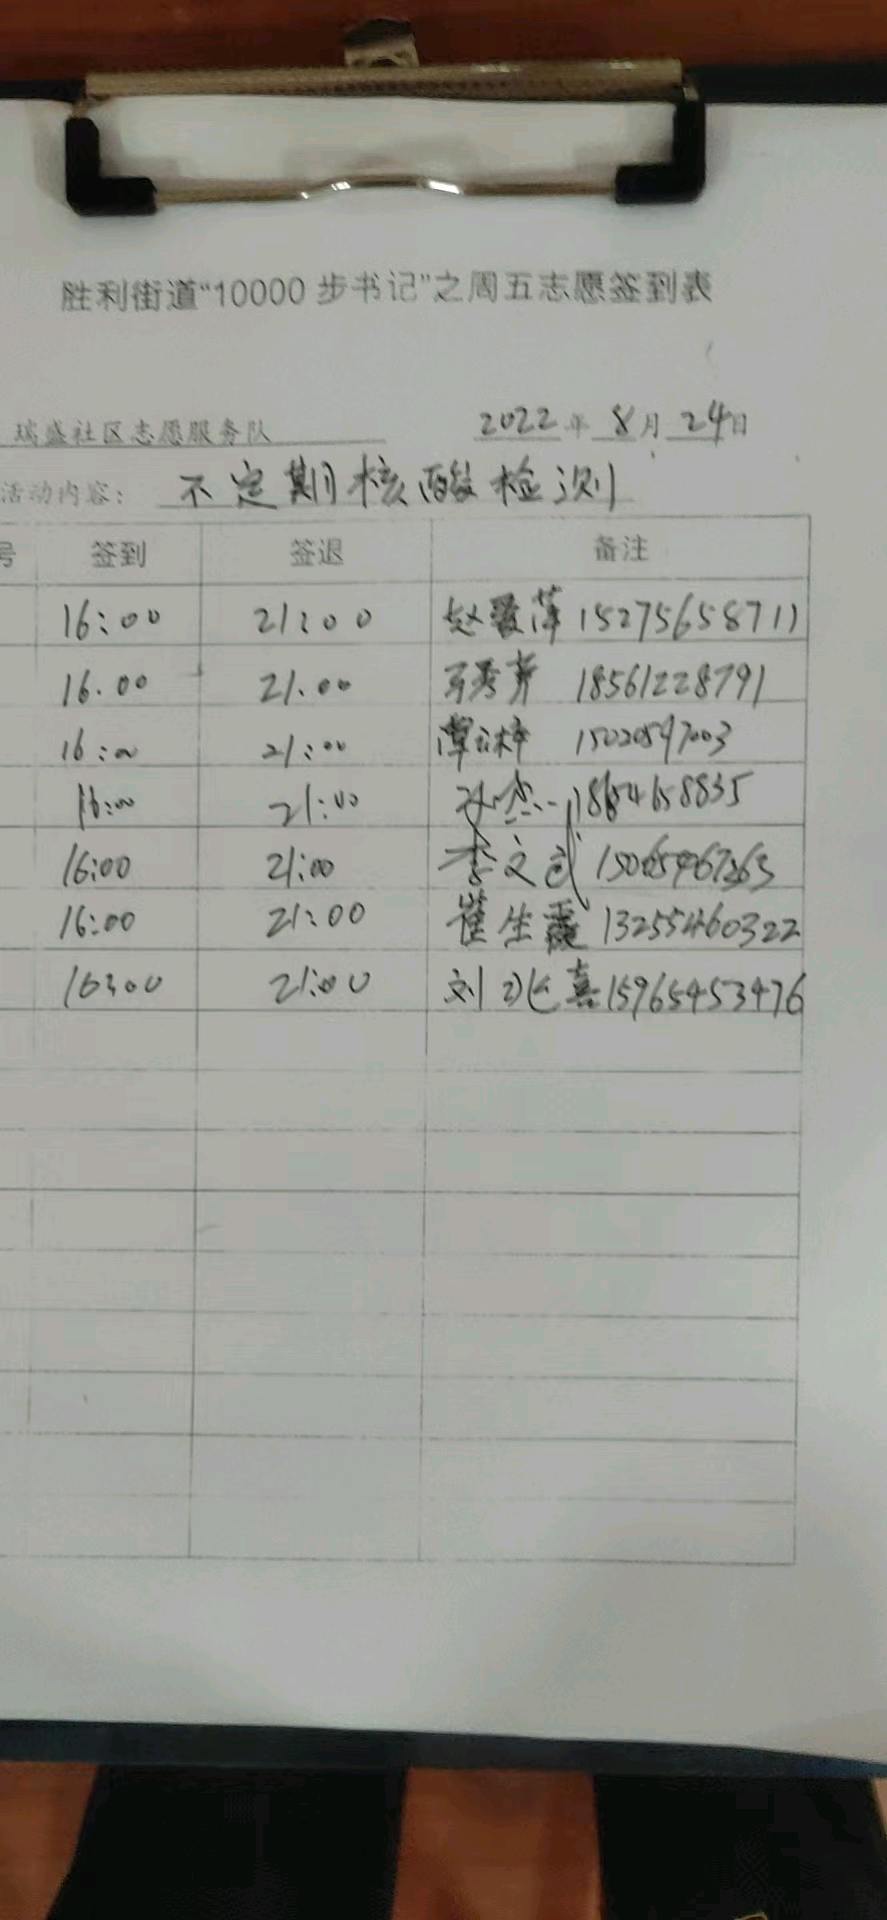 胜利街道“10000步书记”之周五志愿签到表
瑞盛社区志愿服务队 2022年8月24日
活动内容: 不定期核酸检测
号 签到 签退 备注
16:00 21:00 赵爱萍 15275658711
16.00 21.00 18561228791
16:00 21:00
16:00 21:00
16:00 21:00 李文武
16:00 21:00 崔生霞 13255460322
16:00 21:00 刘 喜 15965453476